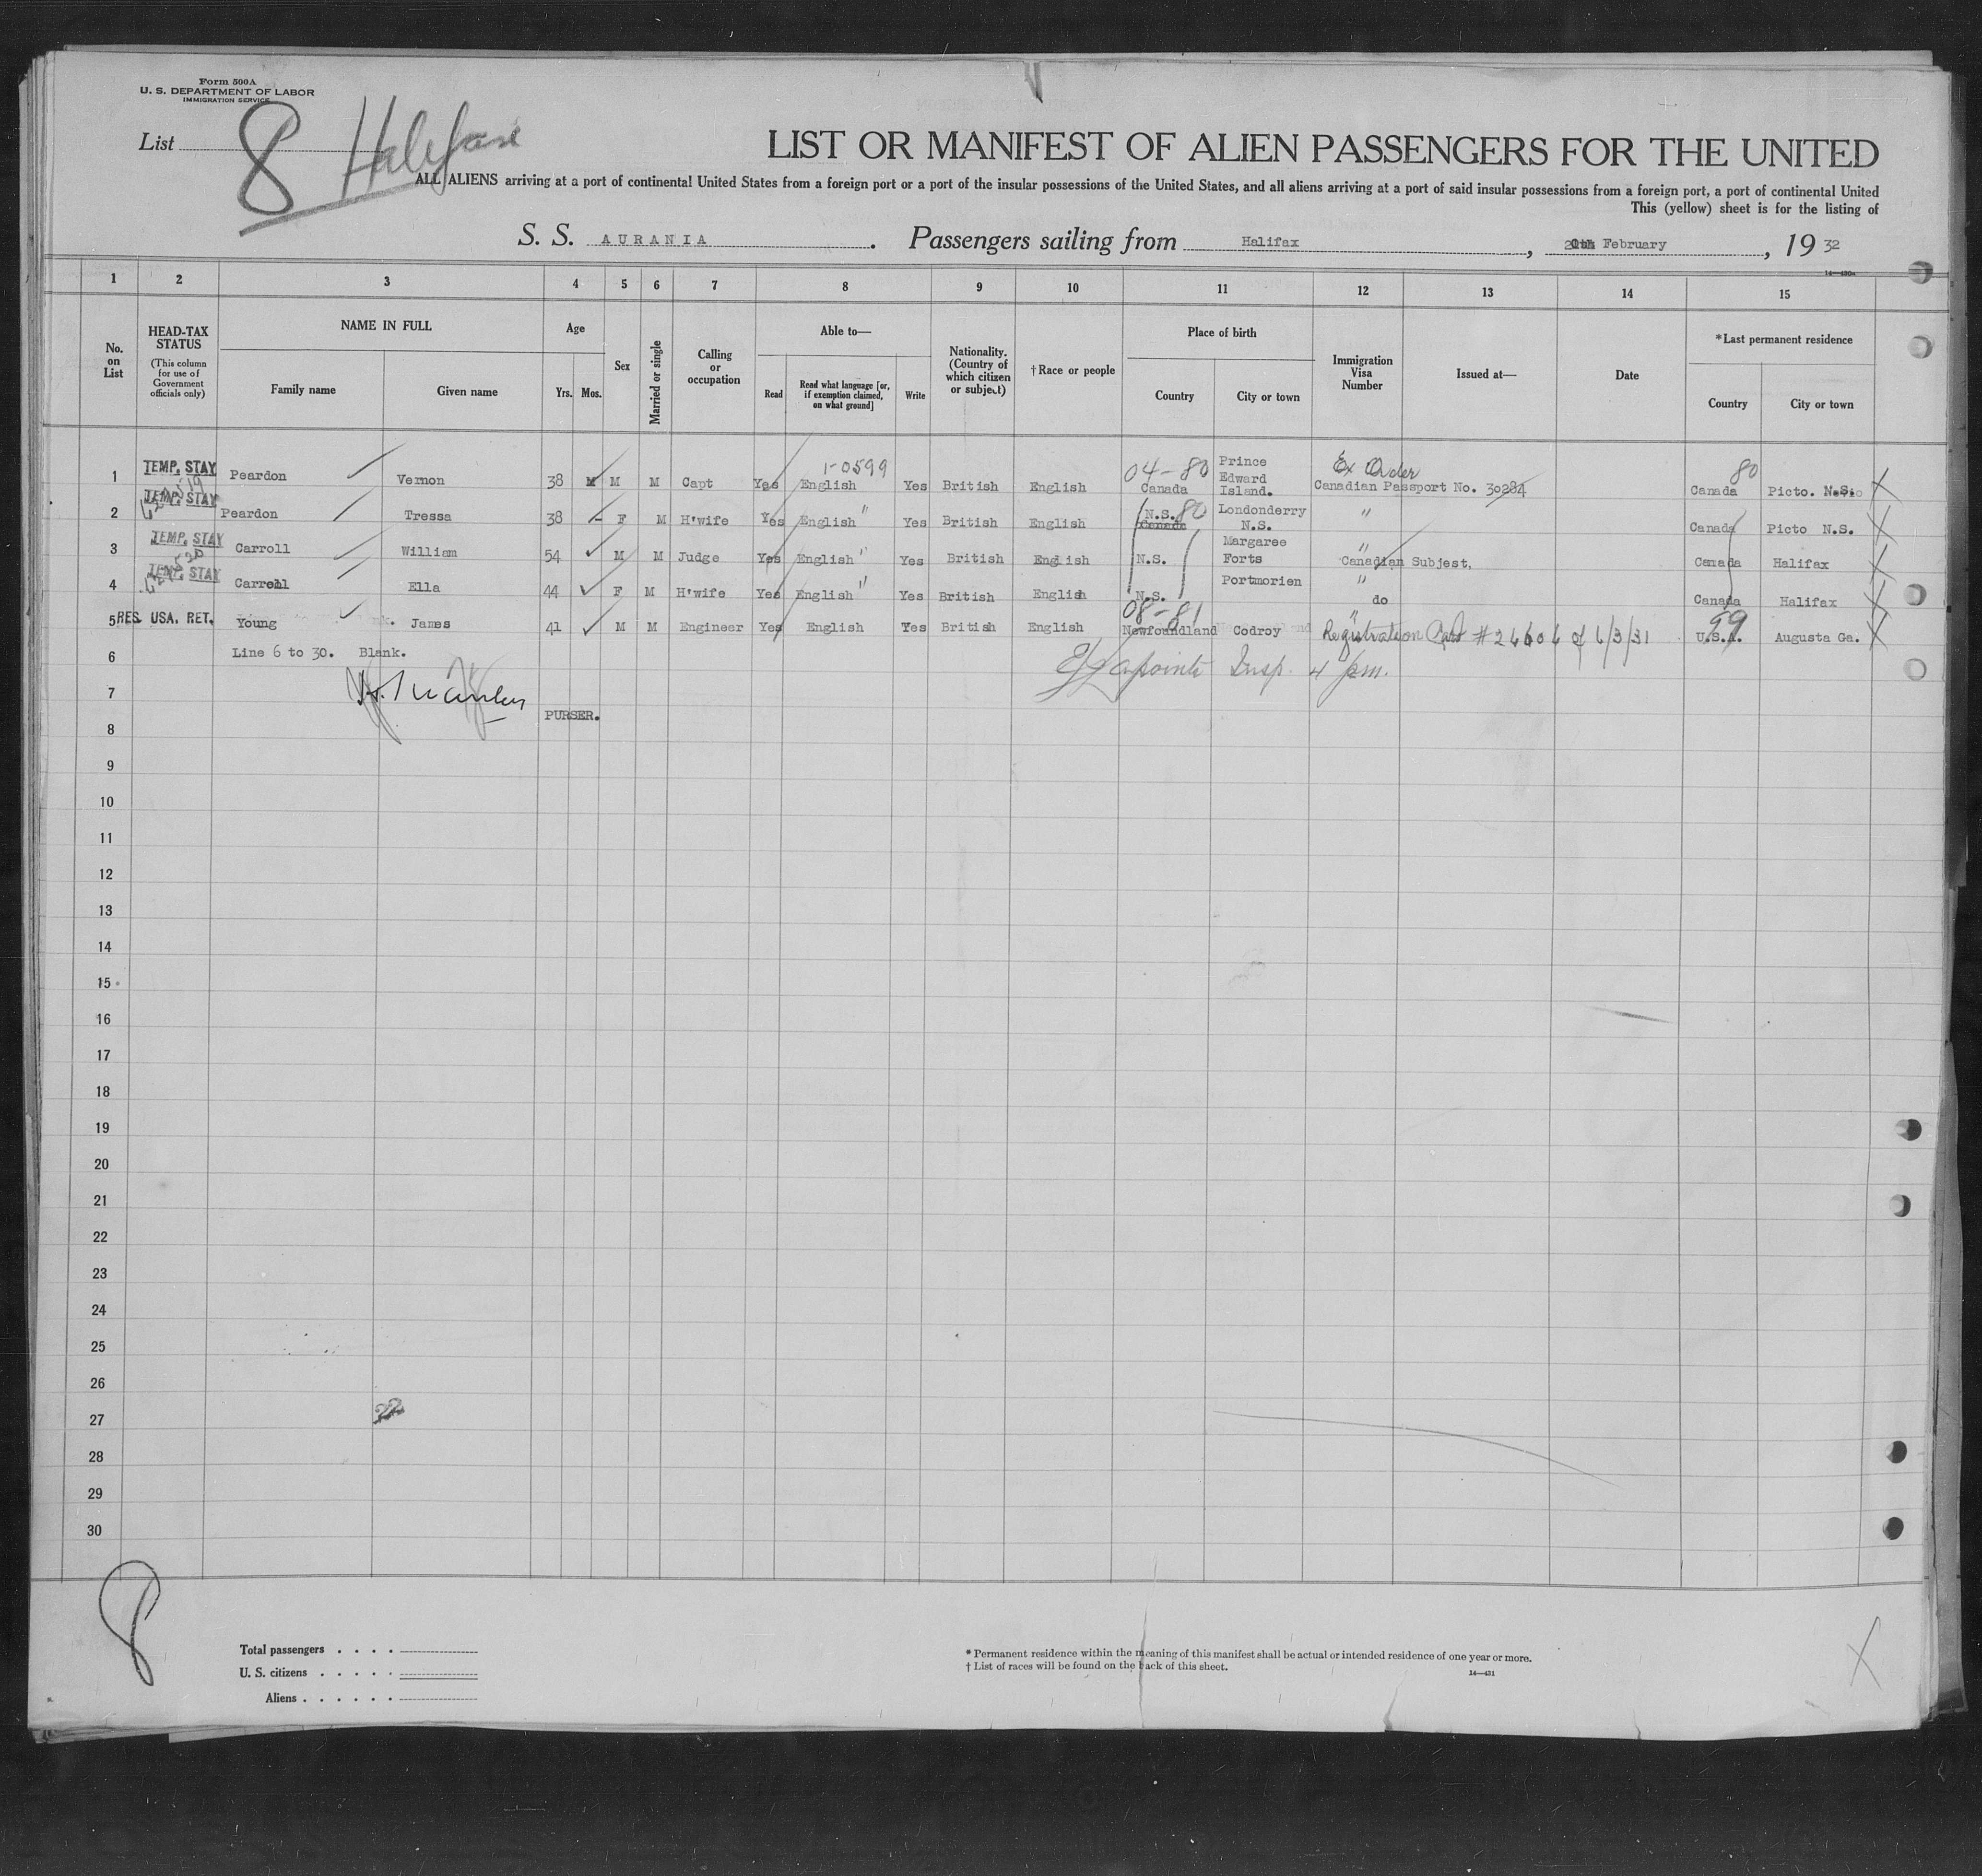 Form 500A
U. S. DEPARTMENT OF LABOR
IMMIGRATION SERVICE
List 8 Halifax
LIST OR MANIFEST OF ALIEN PASSENGERS FOR THE UNITED
ALL ALIENS arriving at a port of continental United States from a foreign port or a port of the insular possessions of the United States, and all aliens arriving at a port of said insular possessions from a foreign port, a port of continental United
This (yellow) sheet is for the listing of
S. S. AURANIA. Passengers sailing from Halifax, February, 19 32
14—430a
1 2 3 4 5 6 7 8 9 10 11 12 13 14 15
No. on List
HEAD-TAX STATUS
(This column for use of Government officials only)
NAME IN FULL
Family name Given name
Age
Yrs. Mos.
Sex
Married or single
Calling or occupation
Able to—
Read Read what language [or, if exemption claimed, on what ground] Write
Nationality. (Country of which citizen or subject)
†Race or people
Place of birth
Country City or town
Immigration Visa Number
Issued at—
Date
*Last permanent residence
Country City or town
1-0599 04-80 Ex Order 80
1 TEMP. STAY Peardon Vernon 38 M M M Capt Yes English Yes British English Canada Prince Edward Island. Canadian Passport No. 30284 Canada Picto. N.S. X
2 TEMP. STAY Peardon Tressa 38 F M H'wife Yes English " Yes British English N.S. 80 Canada Londonderry N.S. " Canada Picto N.S. X
3 TEMP. STAY Carroll William 54 M M Judge Yes English " Yes British English N.S. Margaree Forts " Canadian Subjest. Canada Halifax X
4 TEMP. STAY Carroll Ella 44 F M H'wife Yes English " Yes British English N.S. Portmorien " do Canada Halifax X
08-81 99
5 RES. USA. RET. Young James 41 M M Engineer Yes English Yes British English Newfoundland Codroy " Registration Card #24606 of 6/3/31 U.S.A. Augusta Ga. X
6 Line 6 to 30. Blank.
Lapointe Insp. 4 pm.
7
PURSER.
8
9
10
11
12
13
14
15
16
17
18
19
20
21
22
23
24
25
26
27
28
29
30
8
Total passengers . . . .
U. S. citizens . . . . .
Aliens . . . . . .
* Permanent residence within the meaning of this manifest shall be actual or intended residence of one year or more.
† List of races will be found on the back of this sheet.
14—431
X